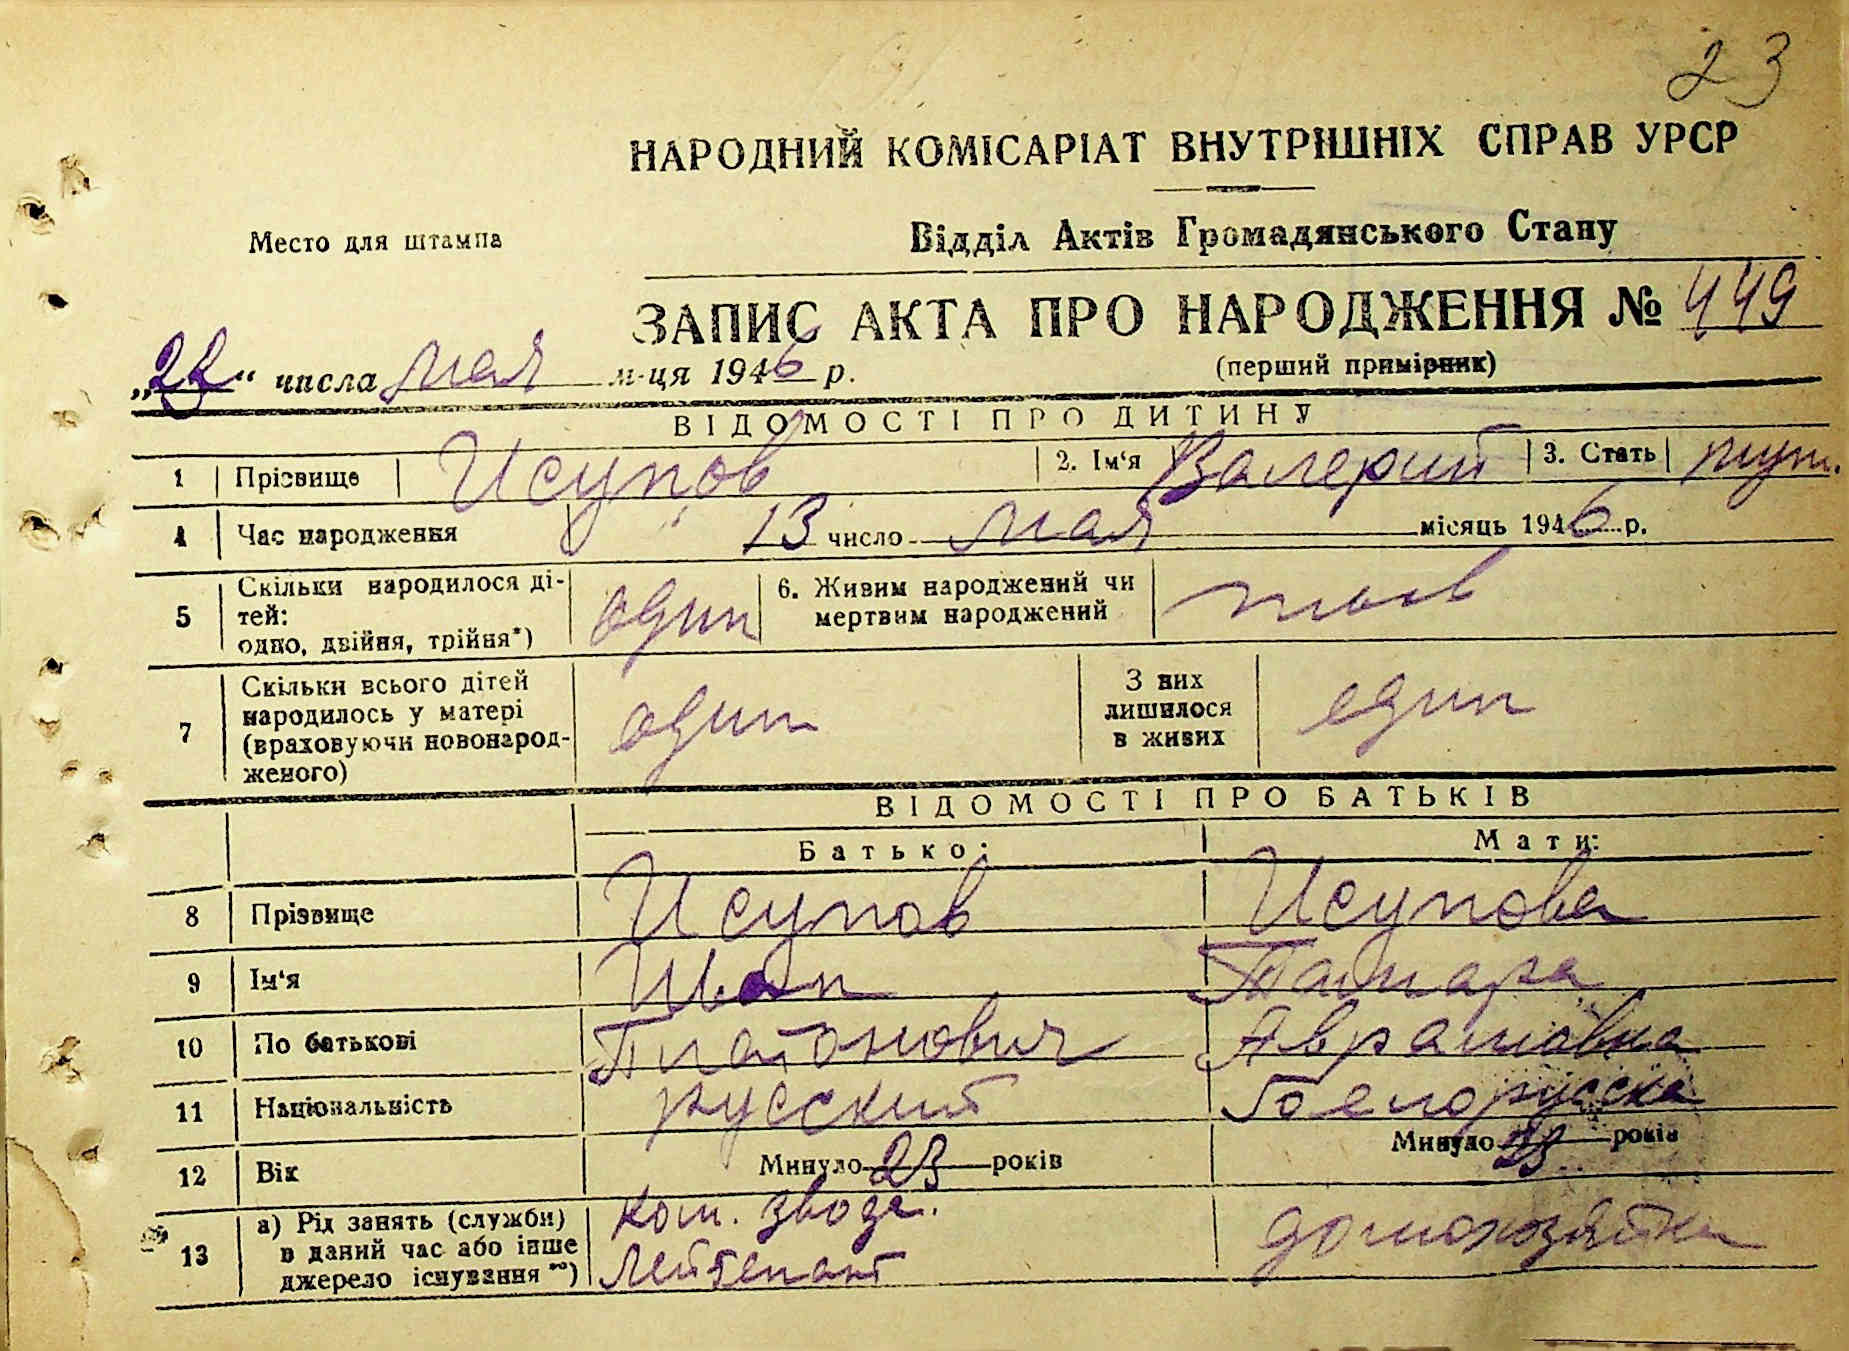 23
НАРОДНИЙ КОМІСАРІАТ ВНУТРІШНІХ СПРАВ УРСР
Место для штампа
Відділ Актів Громадянського Стану
ЗАПИС АКТА ПРО НАРОДЖЕННЯ № 449
(перший примірник)
„22“ числа мая м-ця 1946 р.
ВІДОМОСТІ ПРО ДИТИНУ
1 Прізвище Исупов 2. Ім‘я Валерий 3. Стать муж.
4 Час народження 13 число мая місяць 1946 р.
5 Скільки народилося ді-
тей:
одно, двійня, трійня*) один 6. Живим народжений чи
мертвим народжений
7 Скільки всього дітей
народилось у матері
(враховуючи новонарод-
женого) один З них
лишилося
в живих один
ВІДОМОСТІ ПРО БАТЬКІВ
Батько: Мати:
8 Прізвище Исупов Исупова
9 Ім‘я Иван Тамара
10 По батькові Платонович Аврамовна
11 Національність русский белорусска
12 Вік Минуло 23 років Минуло 23 років
13 а) Рід занять (служби)
в даний час або інше
джерело існування **) Ком. звода.
лейтенант домохозяйка